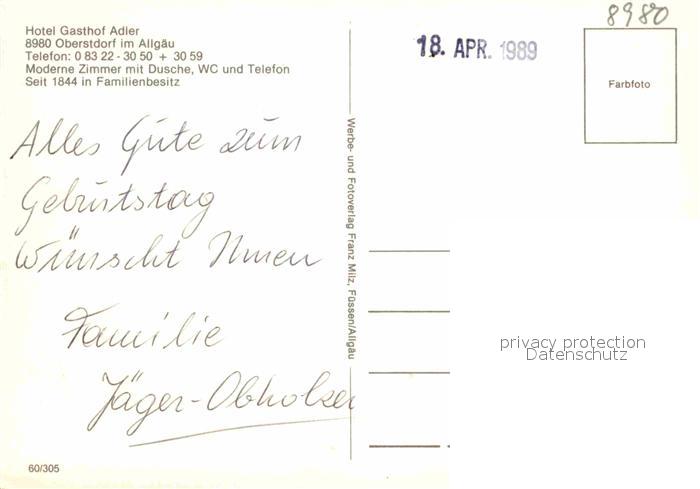 Hotel Gasthof Adler
8980 Oberstdorf im Allgäu
Telefon: 0 83 22 - 30 50 + 30 59
Moderne Zimmer mit Dusche, WC und Telefon
Seit 1844 in Familienbesitz
8980
18. APR. 1989
Farbfoto
Alles Gute zum
Geburtstag
wünscht Ihnen
Familie
Jäger-Obholzer
Werbe- und Fotoverlag Franz Milz, Füssen/Allgäu
privacy protection
Datenschutz
60/305